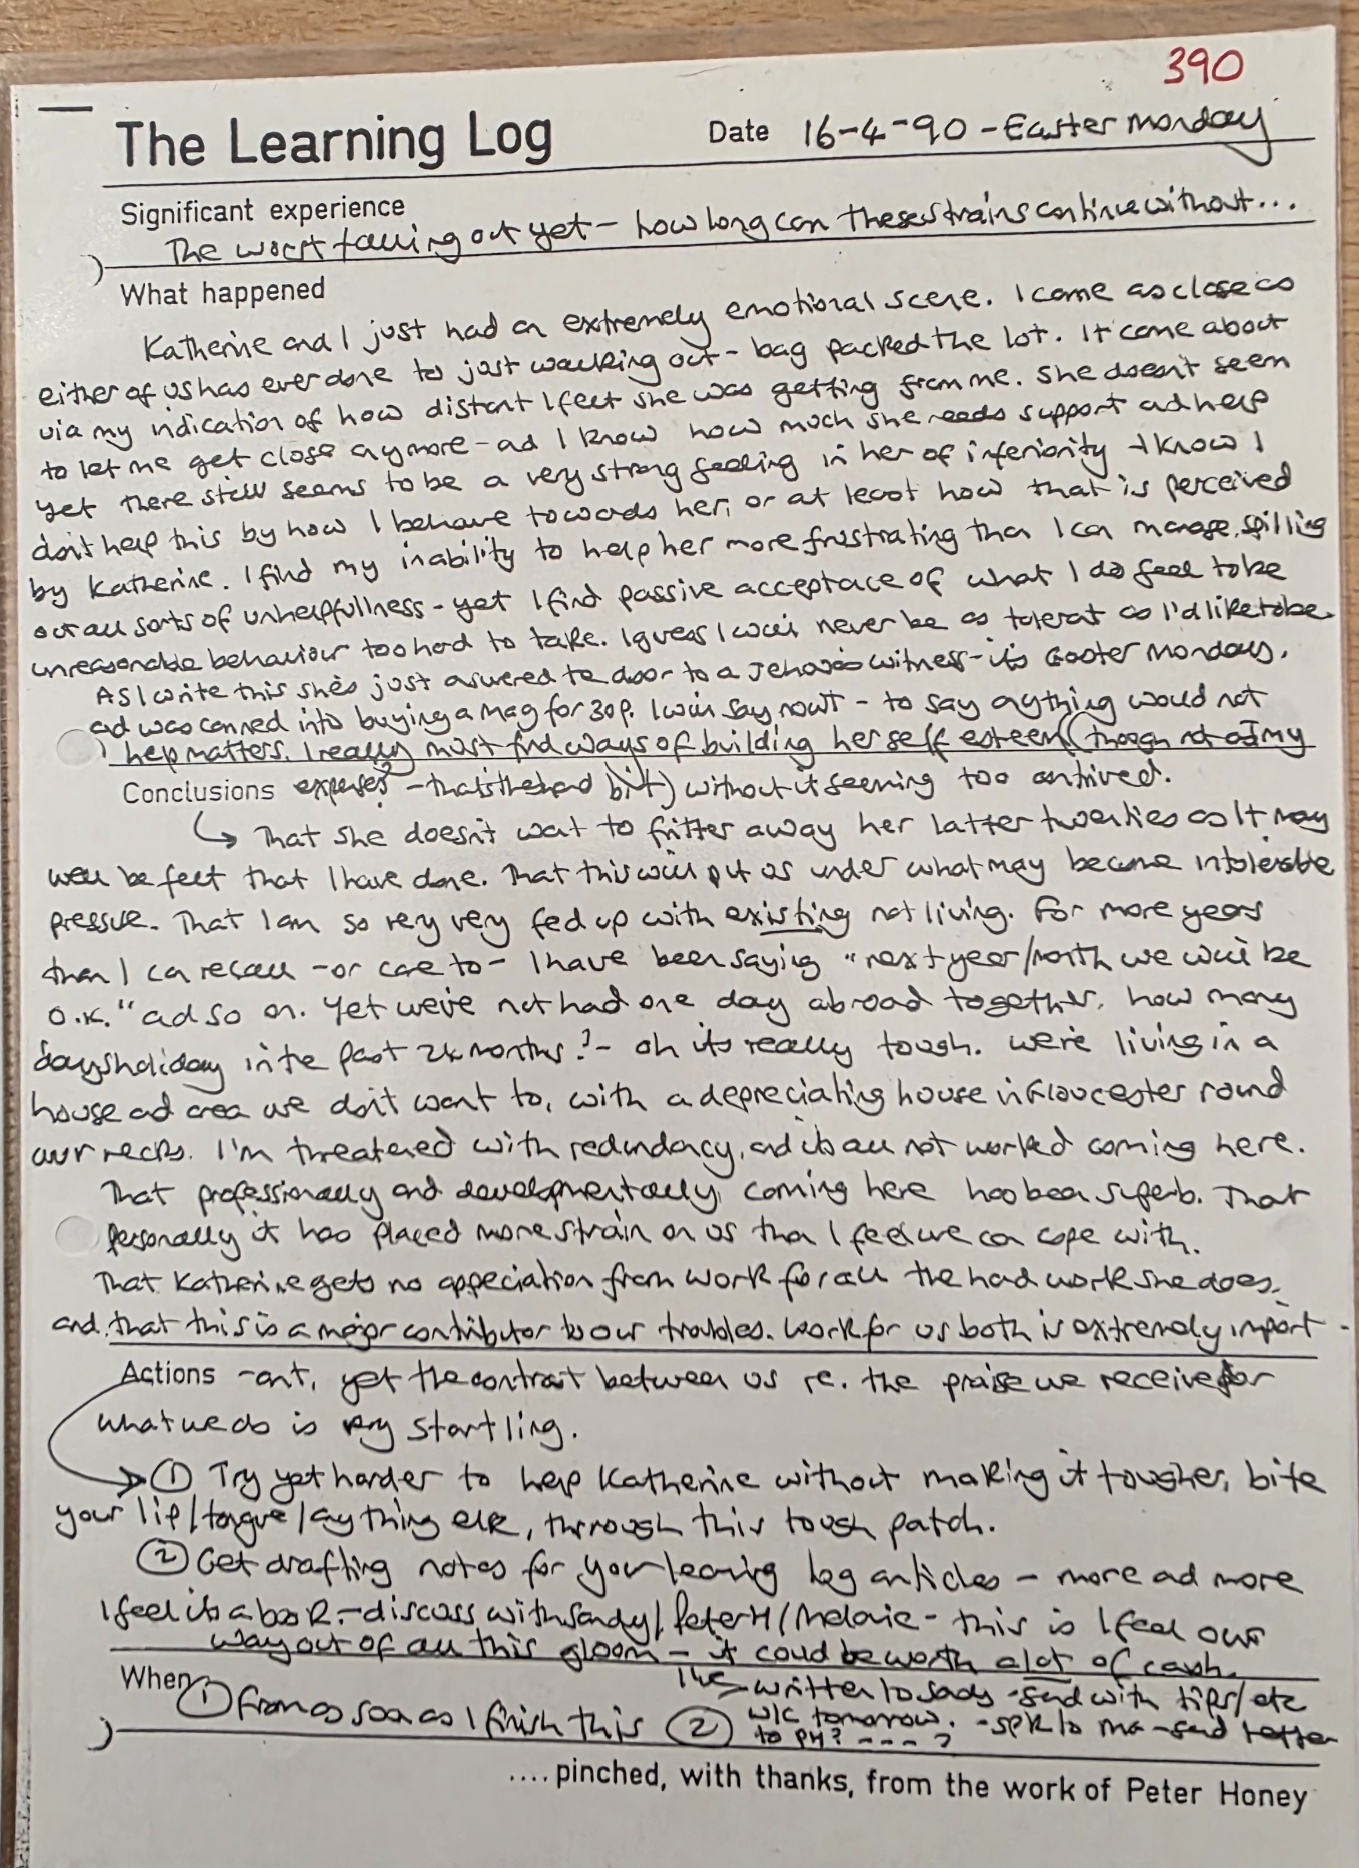 390
The Learning Log
Date 16-4-90 - Easter Monday
Significant experience
The worst falling out yet - how long can these strains continue without...
What happened
Katherine and I just had an extremely emotional scene. I came as close as
either of us has ever done to just walking out - bag packed the lot. It came about
via my indication of how distant I feel she was getting from me. She doesn't seem
to let me get close anymore - and I know how much she needs support and help
yet there still seems to be a very strong feeling in her of inferiority + I know I
don't help this by how I behave towards her, or at least how that is perceived
by Katherine. I find my inability to help her more frustrating than I can manage, spilling
out all sorts of unhelpfullness - yet I find passive acceptance of what I do feel to be
unreasonable behaviour too hard to take. I guess I will never be as tolerant as I'd like to be.
As I write this she's just answered the door to a Jehova's witness - it's Easter Monday,
and was conned into buying a mag for 30p. I will say nowt - to say anything would not
help matters. I really must find ways of building her self esteem (though not at my
Conclusions expense? - that's the hard bit) without it seeming too contrived.
→ That she doesn't want to fritter away her latter twenties as it may
well be felt that I have done. That this will put us under what may become intolerable
pressure. That I am so very very fed up with existing not living. For more years
than I can recall - or care to - I have been saying "next year/month we will be
O.K." and so on. Yet we've not had one day abroad together, how many
days holiday in the past 24 months? - oh it's really tough. We're living in a
house and area we don't want to, with a depreciating house in Gloucester round
our necks. I'm threatened with redundancy, and it's all not worked coming here.
That professionally and developmentally, coming here has been superb. That
personally it has placed more strain on us than I feel we can cope with.
That Katherine gets no appeciation from work for all the hard work she does,
and that this is a major contributor to our troubles. Work for us both is extremely import-
Actions -ant, yet the contrast between us re. the praise we receive for
what we do is very startling.
→ ① Try yet harder to help Katherine without making it tougher, bite
your lip/tongue/anything else, through this tough patch.
② Get drafting notes for your learning log articles - more and more
I feel it's a book - discuss with Sandy/Peter H/Melanie - this is I feel our
way out of all this gloom - it could be worth a lot of cash.
When ① From as soon as I finish this ② w/c tomorrow.
written to Sandy - send with tips/etc
- spk to - send letter
to PH? ---- ?
....pinched, with thanks, from the work of Peter Honey